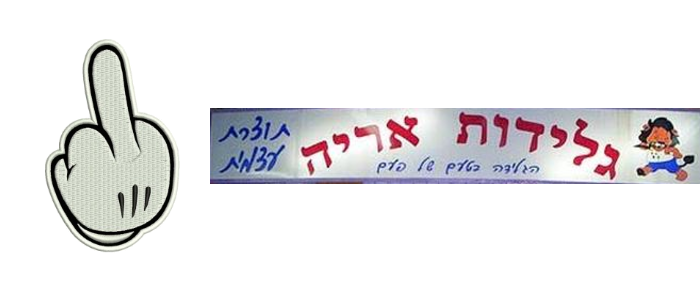 גלידות אריה
הגלידה בטעם של פעם
תוצרת
עצמית